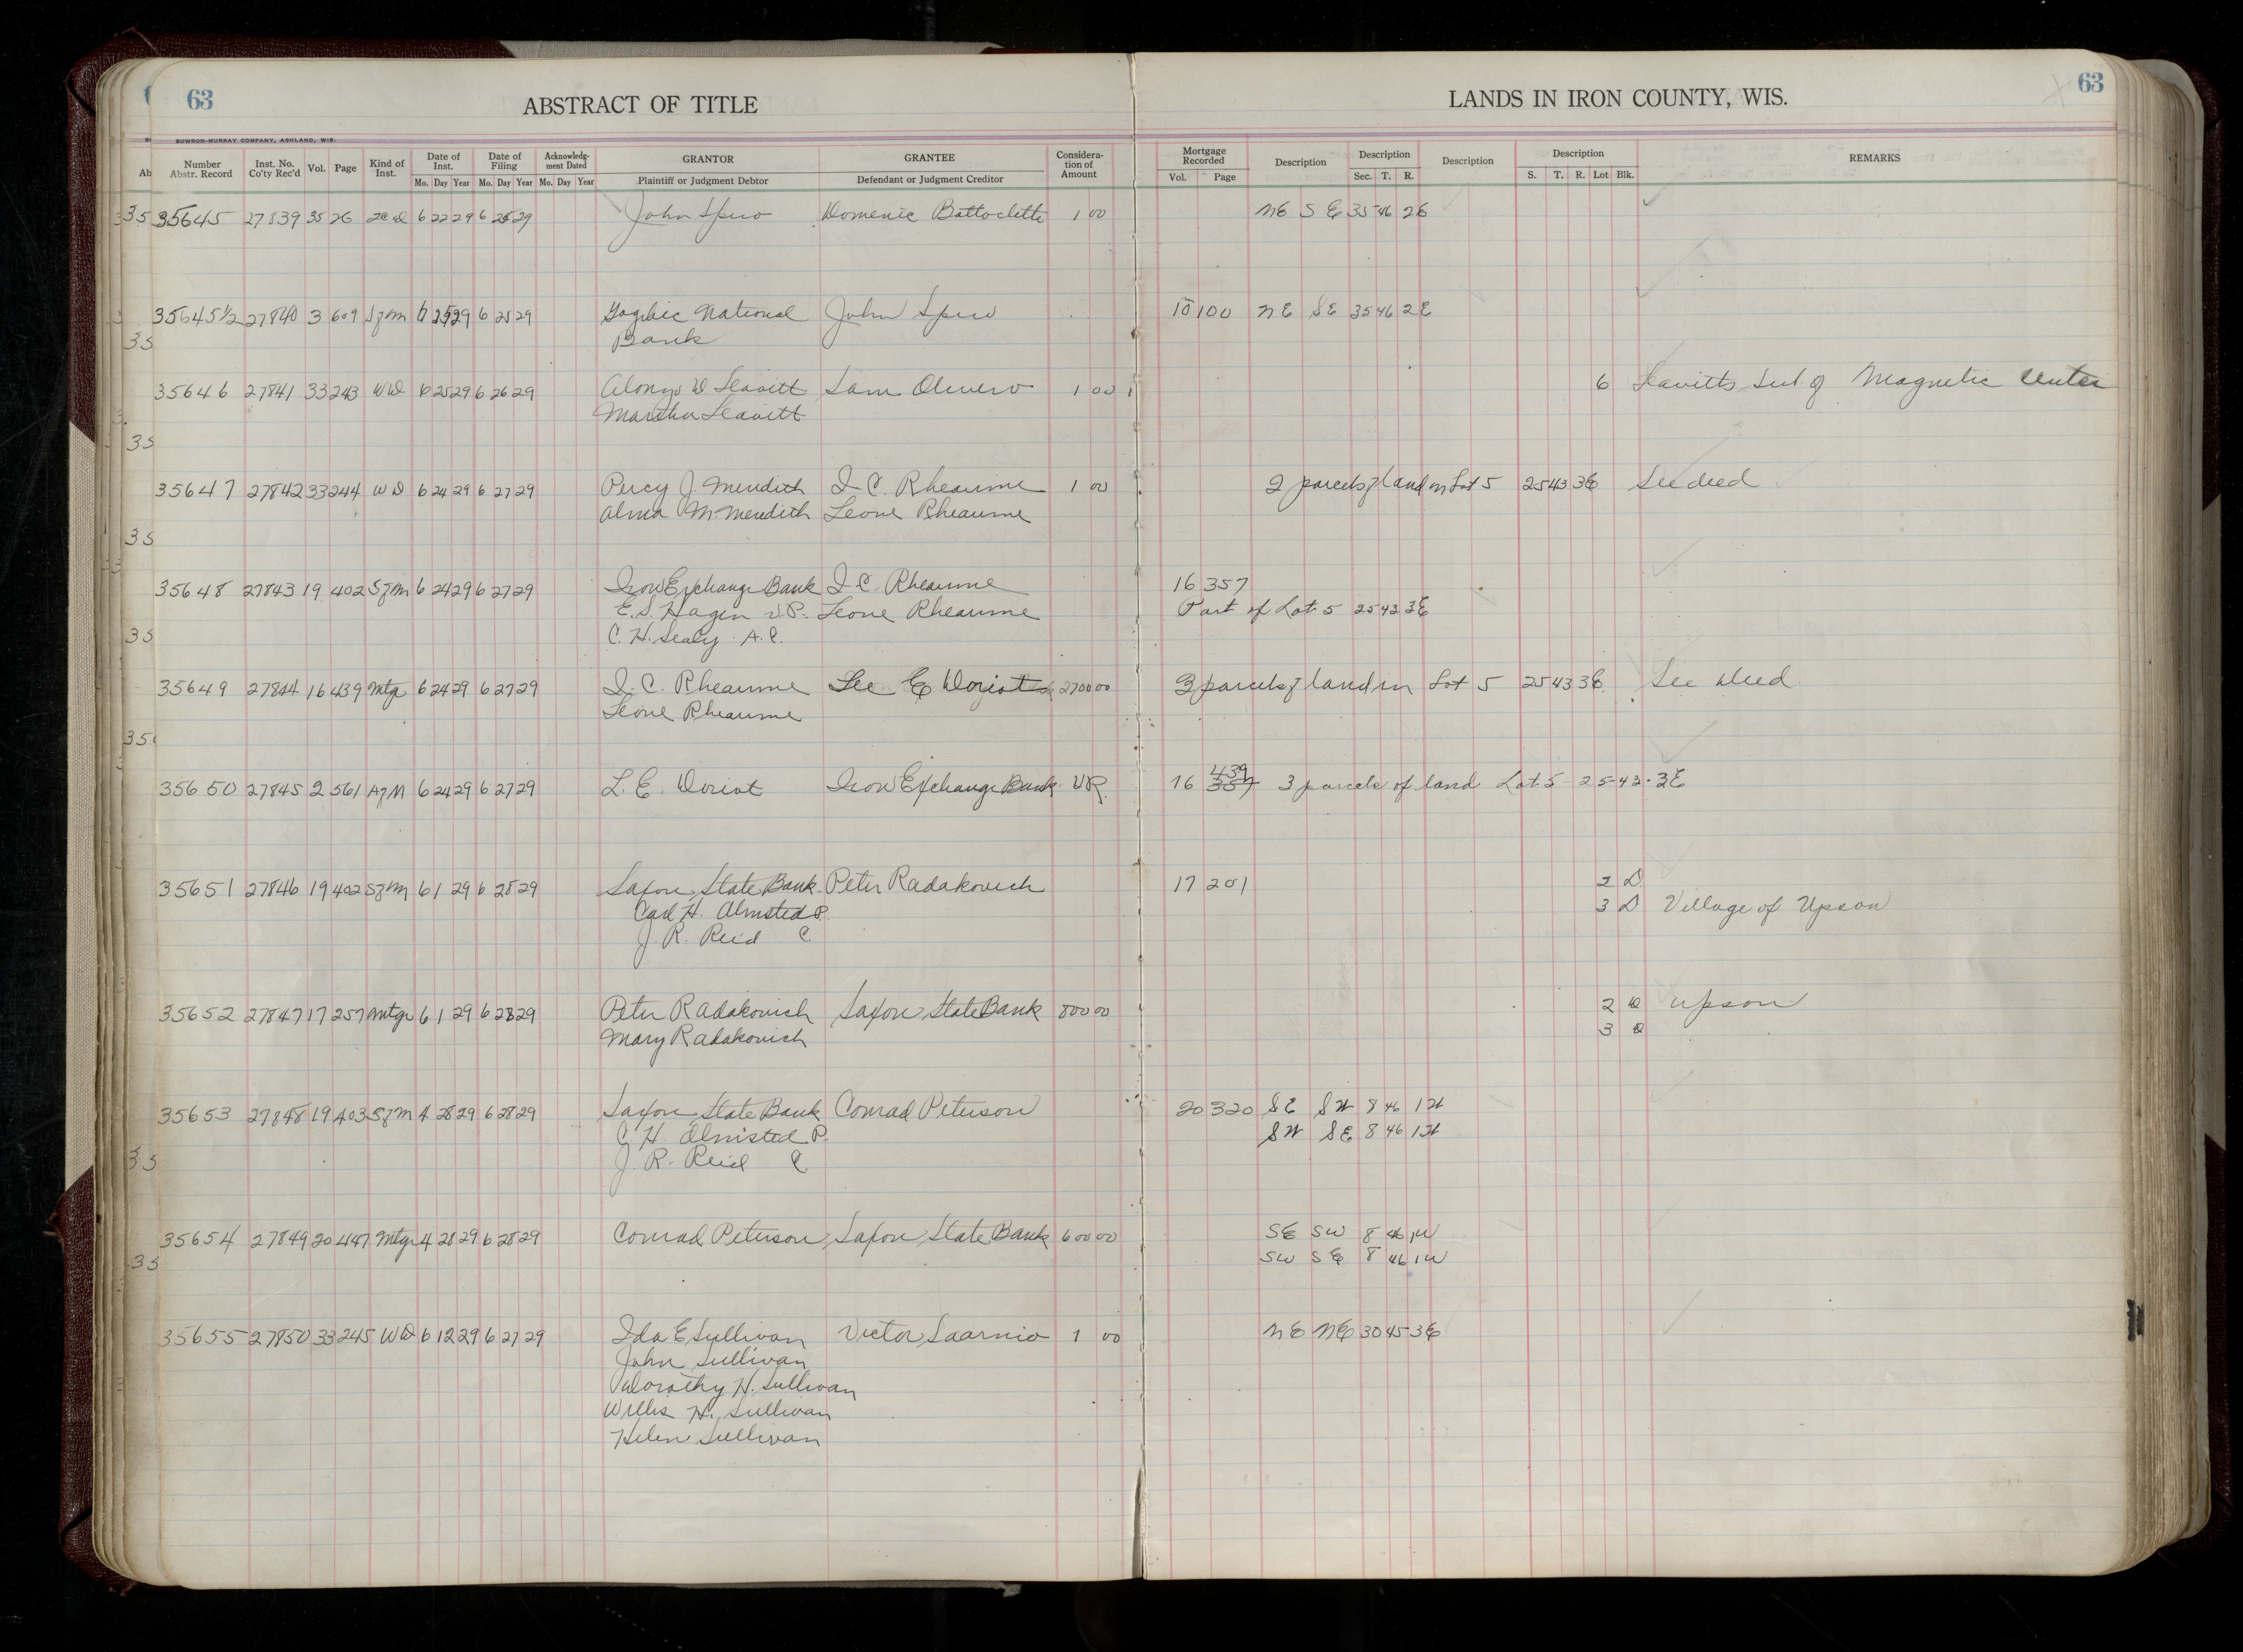 63
ABSTRACT OF TITLE
LANDS IN IRON COUNTY, WIS.
63
BOWRON-MURRAY COMPANY, ASHLAND, WIS.
Number Abstr. Record Inst. No. Co'ty Rec'd Vol. Page Kind of Inst. Date of Inst. Date of Filing Acknowledgment Dated GRANTOR GRANTEE Consideration of Amount Mortgage Recorded Description Description Description Description REMARKS
Mo. Day Year Mo. Day Year Mo. Day Year Plaintiff or Judgment Debtor Defendant or Judgment Creditor Vol. Page Sec. T. R. S. T. R. Lot Blk.
35645 27839 35 26 6 22 29 6 25 29 John Spiro Domenic Battocletti 1 00 NE SE 35 46 2E
35645½ 27840 3 609 SfM 6 25 29 6 25 29 Gogebic National John Spiro 10 100 NE SE 35 46 2E
Bank
35646 27841 33 243 WD 6 25 29 6 26 29 Alonzo W Leavitt Sam Olivero 1 00 6 Leavitts Sub. of Magnetic Center
Martha Leavitt
35647 27842 33 244 WD 6 24 29 6 27 29 Percy J. Meredith I. C. Rheaume 1 00 2 parcels of land in Lot 5 25 43 3E See deed
Alma M. Meredith Leone Rheaume
35648 27843 19 402 SfM 6 24 29 6 27 29 Iron Exchange Bank I. C. Rheaume 16 357
E. S. Hagen V.P. Leone Rheaume Part of Lot 5 25 43 3E
C. H. Sealy A.C.
35649 27844 16 439 Mtg 6 24 29 6 27 29 I. C. Rheaume Lee E Doriot 2700 00 3 parcels of land in Lot 5 25 43 3E See Deed
Leone Rheaume
439
35650 27845 2 561 AfM 6 24 29 6 27 29 L. E. Doriot Iron Exchange Bank VR 16 357 3 parcels of land Lot 5 25-43-3E
35651 27846 19 402 SfM 6 1 29 6 28 29 Saxon State Bank Peter Radakovich 17 201 2 D
Carl H. Olmsted P. 3 D Village of Upson
J. R. Reid C.
35652 27847 17 257 Mtg 6 1 29 6 28 29 Peter Radakovich Saxon State Bank 800 00 2 D Upson
Mary Radakovich 3 D
35653 27848 19 403 SfM 4 28 29 6 28 29 Saxon State Bank Conrad Peterson 20 320 SE SW 8 46 1W
C. H. Olmsted P. SW SE 8 46 1W
J. R. Reid C.
35654 27849 20 447 Mtg 4 28 29 6 28 29 Conrad Peterson Saxon State Bank 600 00 SE SW 8 46 1W
SW SE 8 46 1W
35655 27850 33 245 WD 6 12 29 6 27 29 Ida E Sullivan Victor Saarnio 1 00 NE NE 30 45 3E
John Sullivan
Dorothy H. Sullivan
Willis H. Sullivan
Helen Sullivan